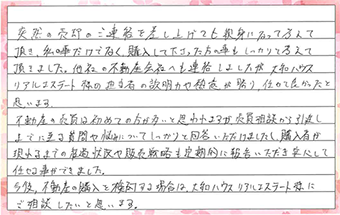 突然の売却のご連絡を差し上げても親身になって考えて
頂き、私の事だけでなく、購入して下さった方の事もしっかりと考えて
頂きました。他社の不動産会社へも連絡しましたが大和ハウス
リアルエステート様の担当者の説明力や熱意が勝り任せて良かったと
思います。
不動産の売買は初めての方が多いと思われますが売買相談から引渡し
までに至る質問や悩みについてしっかりと回答いただけましたし、購入者が
現れるまでの進捗状況や販売戦略も定期的に報告いただき安心して
任せる事ができました。
今後、不動産の購入を検討する場合は、大和ハウスリアルエステート様に
ご相談したいと思います。